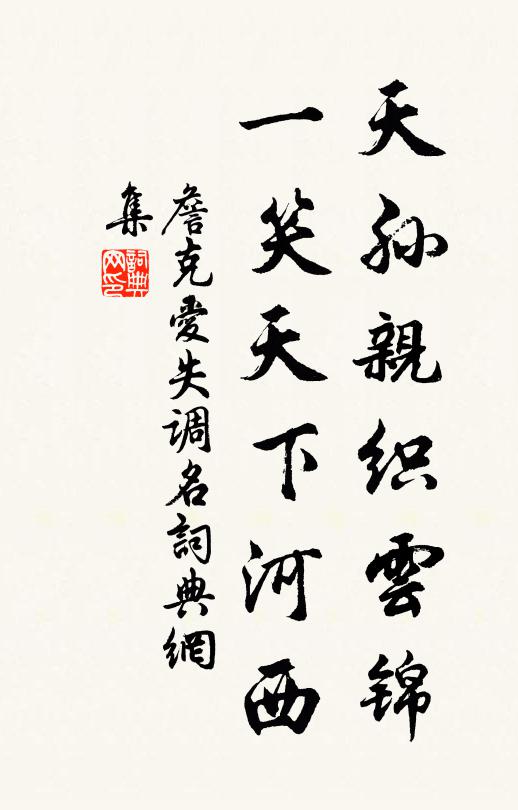 天孙親织雲锦
一笑天下河西
詹克愛失调名詞典網
集
詞典
网印